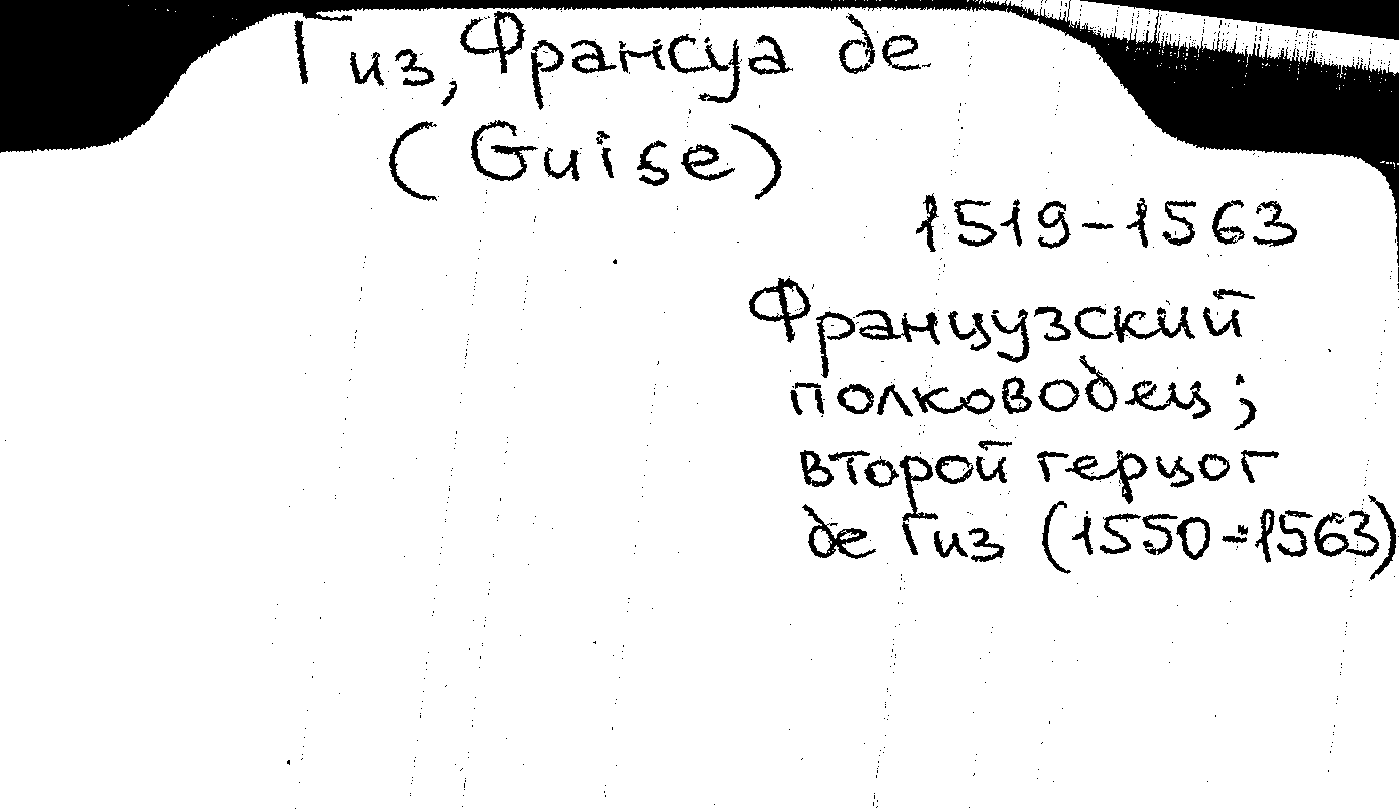 Гиз, Франсуа де
(Guise)
1519-1563
Французский
полководец;
второй герцог
де Гиз (1550-1563)